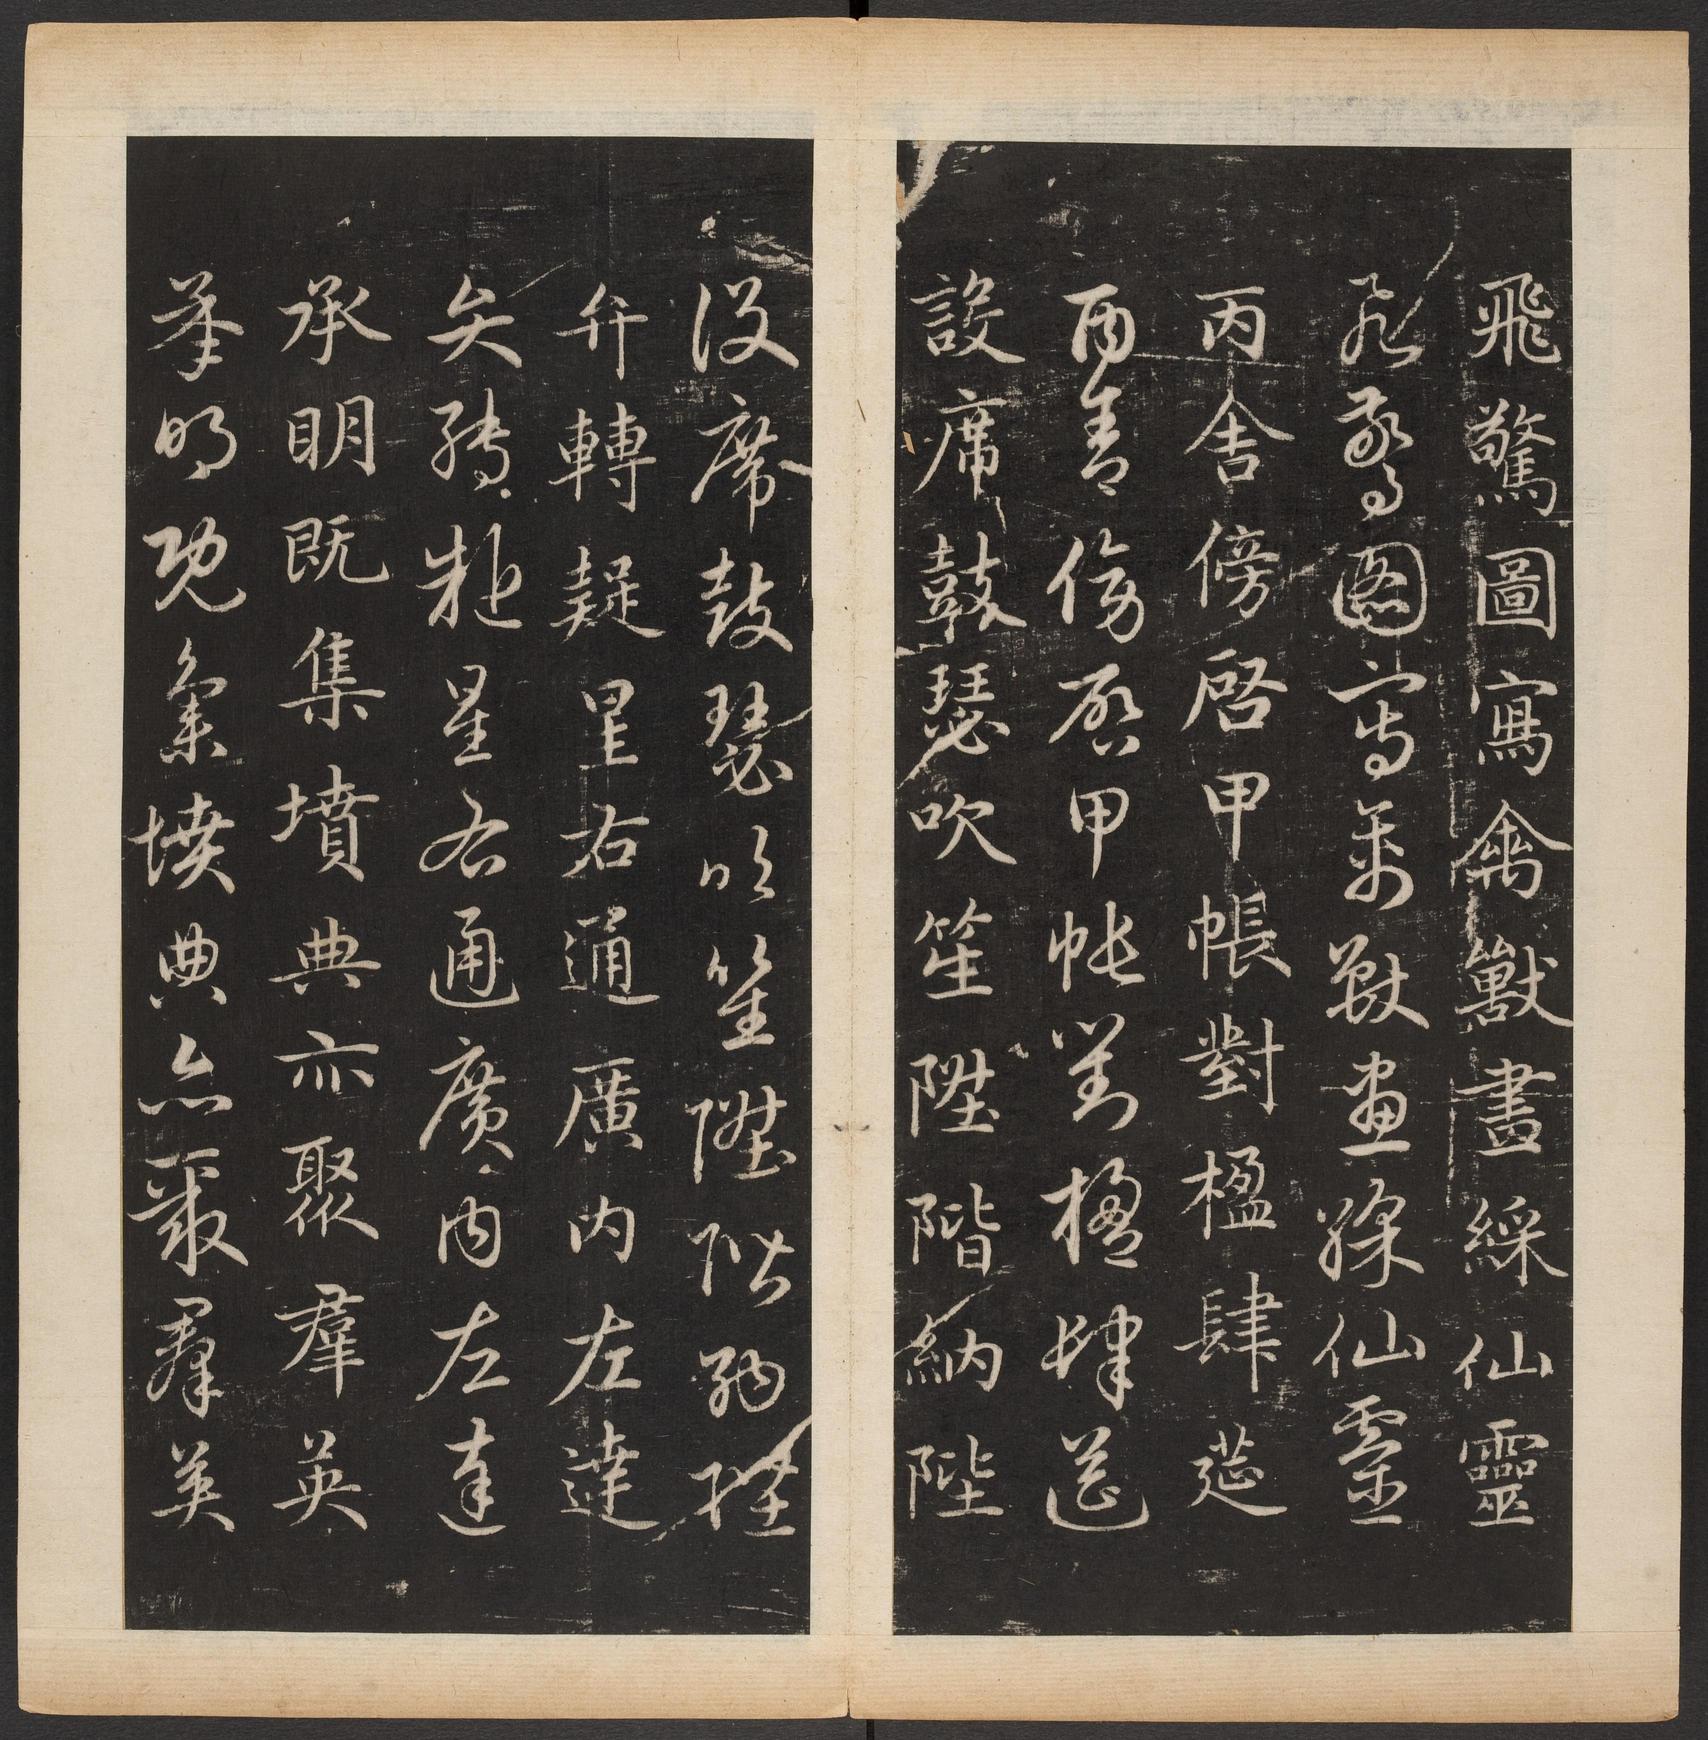 飛驚圖寫禽獸畫綵仙靈
飛驚圖寫禽獸畫綵仙靈
丙舍傍啓甲帳對楹肆筵
丙舍傍啓甲帳對楹肆筵
設席鼓瑟吹笙陞階納陛
設席鼓瑟吹笙陞階納陛
弁轉疑星右通廣内左達
弁轉疑星右通廣内左達
承明既集墳典亦聚羣英
承明既集墳典亦聚羣英